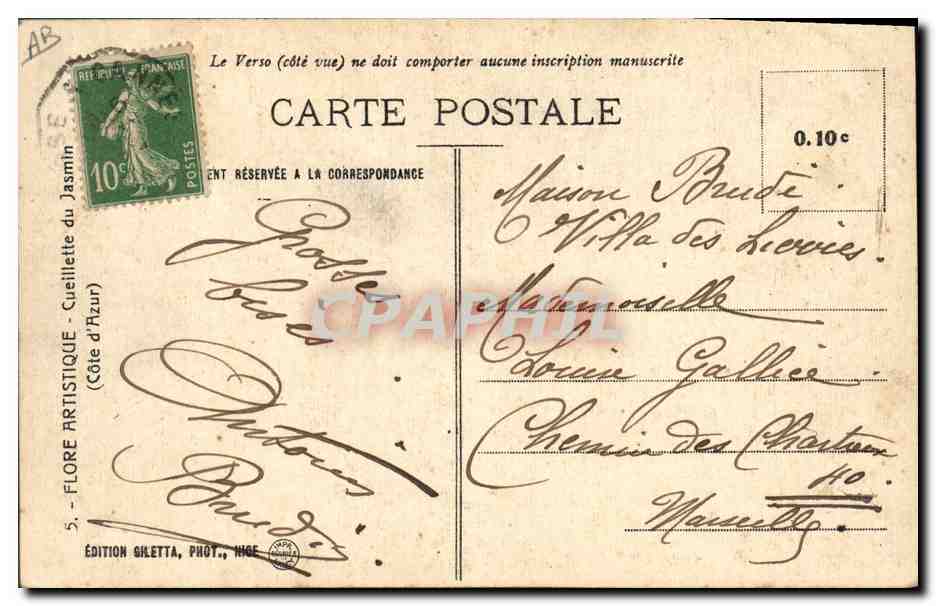 AB
RÉPUBLIQUE FRANÇAISE
10c
POSTES
Le Verso (côté vue) ne doit comporter aucune inscription manuscrite
CARTE POSTALE
0.10c
ENT RÉSERVÉE A LA CORRESPONDANCE
5. - FLORE ARTISTIQUE - Cueillette du Jasmin
(Côte d'Azur)
Grosses
bises
Antonin
Maison Brude
Villa des
Mademoiselle
Louise Gallice
Chemin des Chartreux
110
Marseille
ÉDITION GILETTA, PHOT., NICE
CPAPHIL